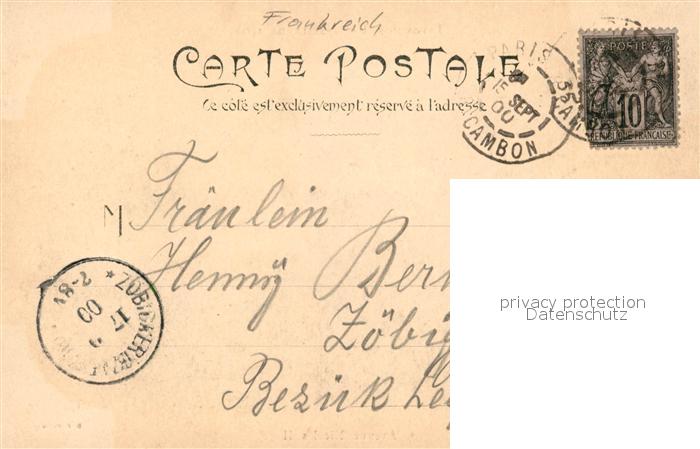 Frankreich
CARTE POSTALE
Ce côté est exclusivement réservé à l'adresse
PARIS
15 SEPT 00
CAMBON
POSTE
10
REPUBLIQUE FRANÇAISE
M
Fräulein
Henny Bern
Zöbig
Bezirk Le
ZÖBIGKER
17 9 00
7-8V
privacy protection
Datenschutz